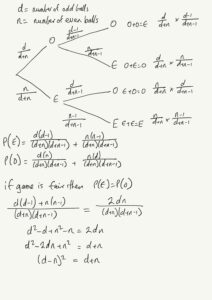 d = number of odd balls
n = number of even balls
d-1/d+n-1 O O+O=E d/d+n × d-1/d+n-1
O
d/d+n n/d+n-1 E O+E=O d/d+n × n/d+n-1
n/d+n d/d+n-1 O E+O=O n/d+n × d/d+n-1
E
n-1/d+n-1 E E+E=E n/d+n × n-1/d+n-1
P(E) = d(d-1)/(d+n)(d+n-1) + n(n-1)/(d+n)(d+n-1)
P(O) = d(n)/(d+n)(d+n-1) + n(d)/(d+n)(d+n-1)
if game is fair then P(E)=P(O)
d(d-1)+n(n-1)/(d+n)(d+n-1) = 2dn/(d+n)(d+n-1)
d²-d+n²-n = 2dn
d²-2dn+n² = d+n
(d-n)² = d+n